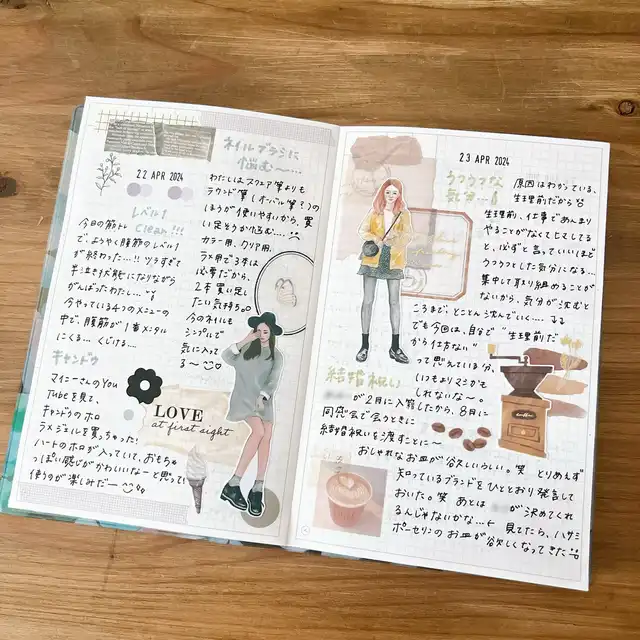 22 APR 2024
レベル1
Clean!!!
今日の筋トレ
で、ようやく腹筋のレベル1
が終わった…!! ツラすぎて
半泣き状態になりながら
がんばったわたし…
今やっている4つのメニューの
中で、腹筋が1番メンタル
にくる… くじける…
キャンドゥ
マイニーさんのYou
Tubeを見て、
キャンドゥのホロ
ラメジェルを買っちゃった!
ハートのホロが入っていて、おもちゃ
っぽい感じがかわいいなーと思って!
使うのが楽しみだー
ネイルブラシに
悩む〜…
わたしはスクエア筆よりも
ラウンド筆(オーバル筆?)の
ほうが使いやすいから、買
い足そうか悩む…
カラー用、クリア用、
ラメ用で3本は
必要だから、
2本買い足し
たい気持ち。
今のネイルも
シンプルで
気に入って
る〜
LOVE
at first sight
23 APR 2024
ウツウツな
気分…!
原因はわかっている、
生理前だから
生理前、仕事であんまり
やることがなくてヒマしてる
と、必ずと言っていいほど
ウツウツとした気分になる…
集中して取り組めることが
ないから、気分が沈むと
こうまで、とことん沈んでいく…
でも今回は、自分で"生理前だ
から仕方ない"
って思えている分、
いつもよりマシかも
しれないな〜。
結婚祝い
が2月に入籍したから、8月に
同感会で会うときに
結婚祝いを渡すことに〜
おしゃれなお皿が欲しいらしい。笑 とりあえず
知っているブランドをひととおり発言して
おいた。笑 あとは が決めてくれ
るんじゃないかな…← 見てたら、ハサミ
ポーセリンのお皿が欲しくなってきた
coffee